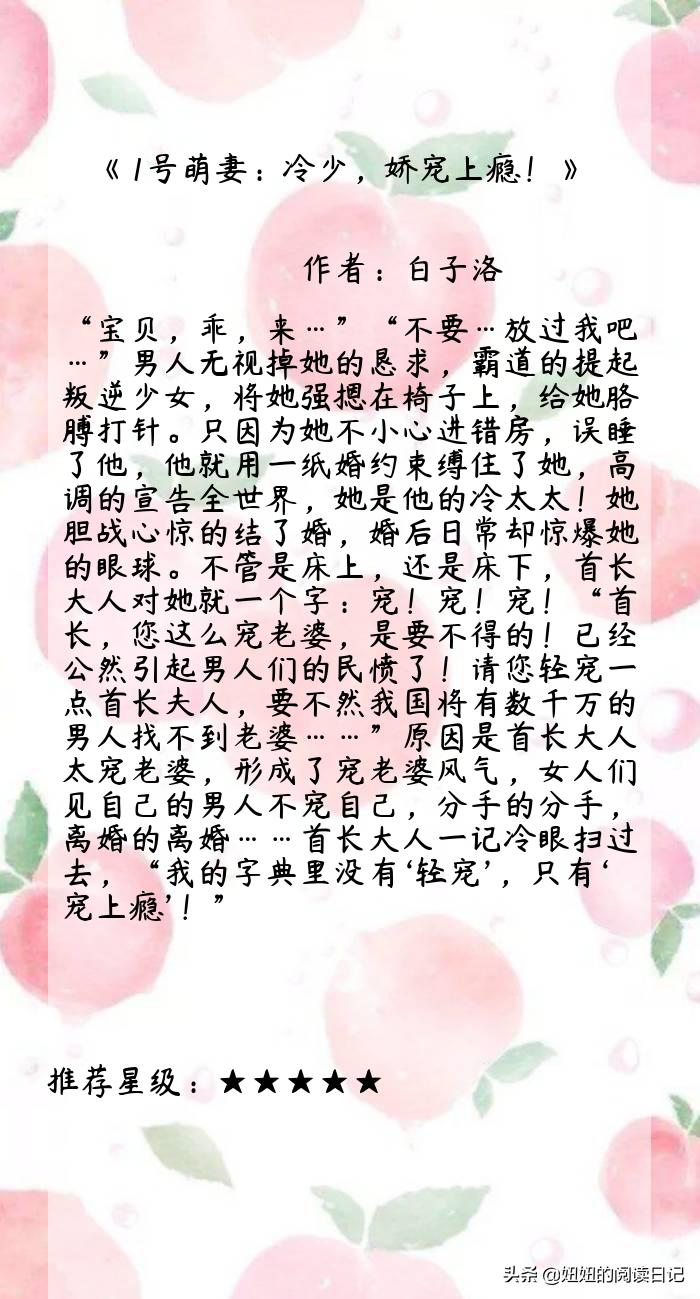 《1号萌妻：冷少，娇宠上瘾！》
作者：白子洛
“宝贝，乖，来…”“不要…放过我吧
…”男人无视掉她的恳求，霸道的提起
叛逆少女，将她强摁在椅子上，给她胳
膊打针。只因为她不小心进错房，误睡
了他，他就用一纸婚约束缚住了她，高
调的宣告全世界，她是他的冷太太！她
胆战心惊的结了婚，婚后日常却惊爆她
的眼球。不管是床上，还是床下，首长
大人对她就一个字：宠！宠！宠！“首
长，您这么宠老婆，是要不得的！已经
公然引起男人们的民愤了！请您轻宠一
点首长夫人，要不然我国将有数千万的
男人找不到老婆……”原因是首长大人
太宠老婆，形成了宠老婆风气，女人们
见自己的男人不宠自己，分手的分手，
离婚的离婚……首长大人一记冷眼扫过
去，“我的字典里没有‘轻宠’，只有‘
宠上瘾’！”
推荐星级：★★★★★
头条 @妞妞的阅读日记